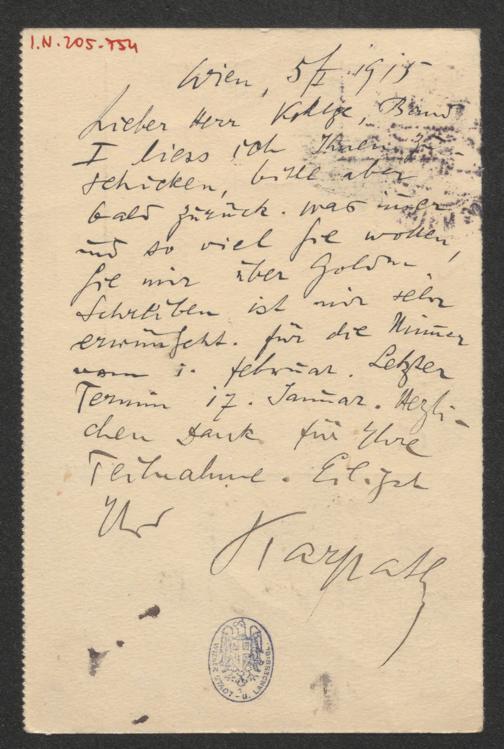 I.N. 205.754
Wien, 5/I 1915
Lieber Herr Kollege, Band
I liess ich Ihnen zu-
schicken, bitte aber
bald zurück. Was immer
und so viel Sie wollen,
Sie mir über Goldm
Schreiben ist mir sehr
erwünscht. für die Nummer
vom 1. februar. Letzter
Termin 17. Januar. Herzli-
chen Dank für Ihre
Teilnahme. Eiligst
Ihr
Karpath
WIENER STADT- U. LANDESBIBL.